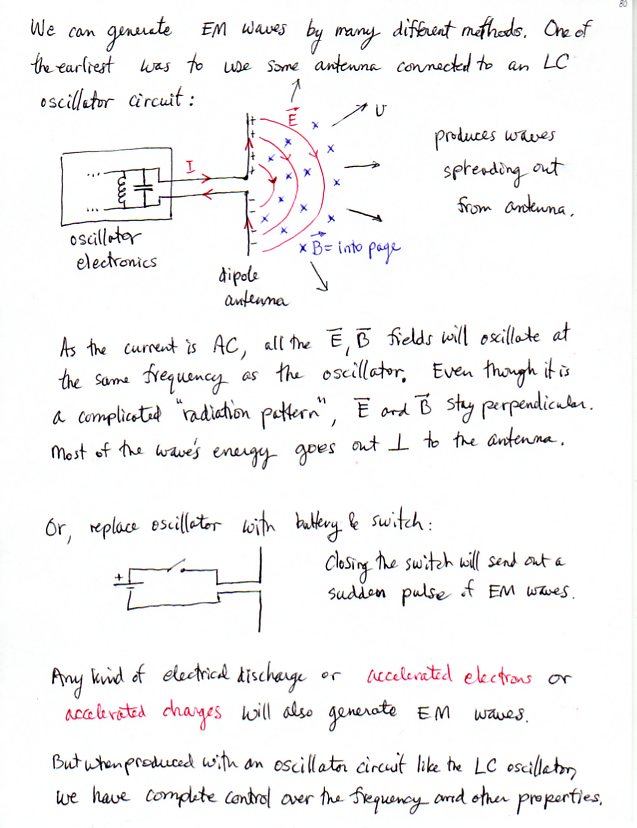 80
We can generate EM waves by many different methods. One of
the earliest was to use some antenna connected to an LC
oscillator circuit:
E
v
produces waves
spreading out
from antenna.
I
+
+
+
+
...
...
-
-
-
-
oscillator
electronics
dipole
antenna
x B = into page
As the current is AC, all the E, B fields will oscillate at
the same frequency as the oscillator. Even though it is
a complicated "radiation pattern", E and B stay perpendicular.
Most of the wave's energy goes out ⊥ to the antenna.
Or, replace oscillator with battery & switch:
+
Closing the switch will send out a
sudden pulse of EM waves.
Any kind of electrical discharge or accelerated electrons or
accelerated charges will also generate EM waves.
But when produced with an oscillator circuit like the LC oscillator,
we have complete control over the frequency and other properties.